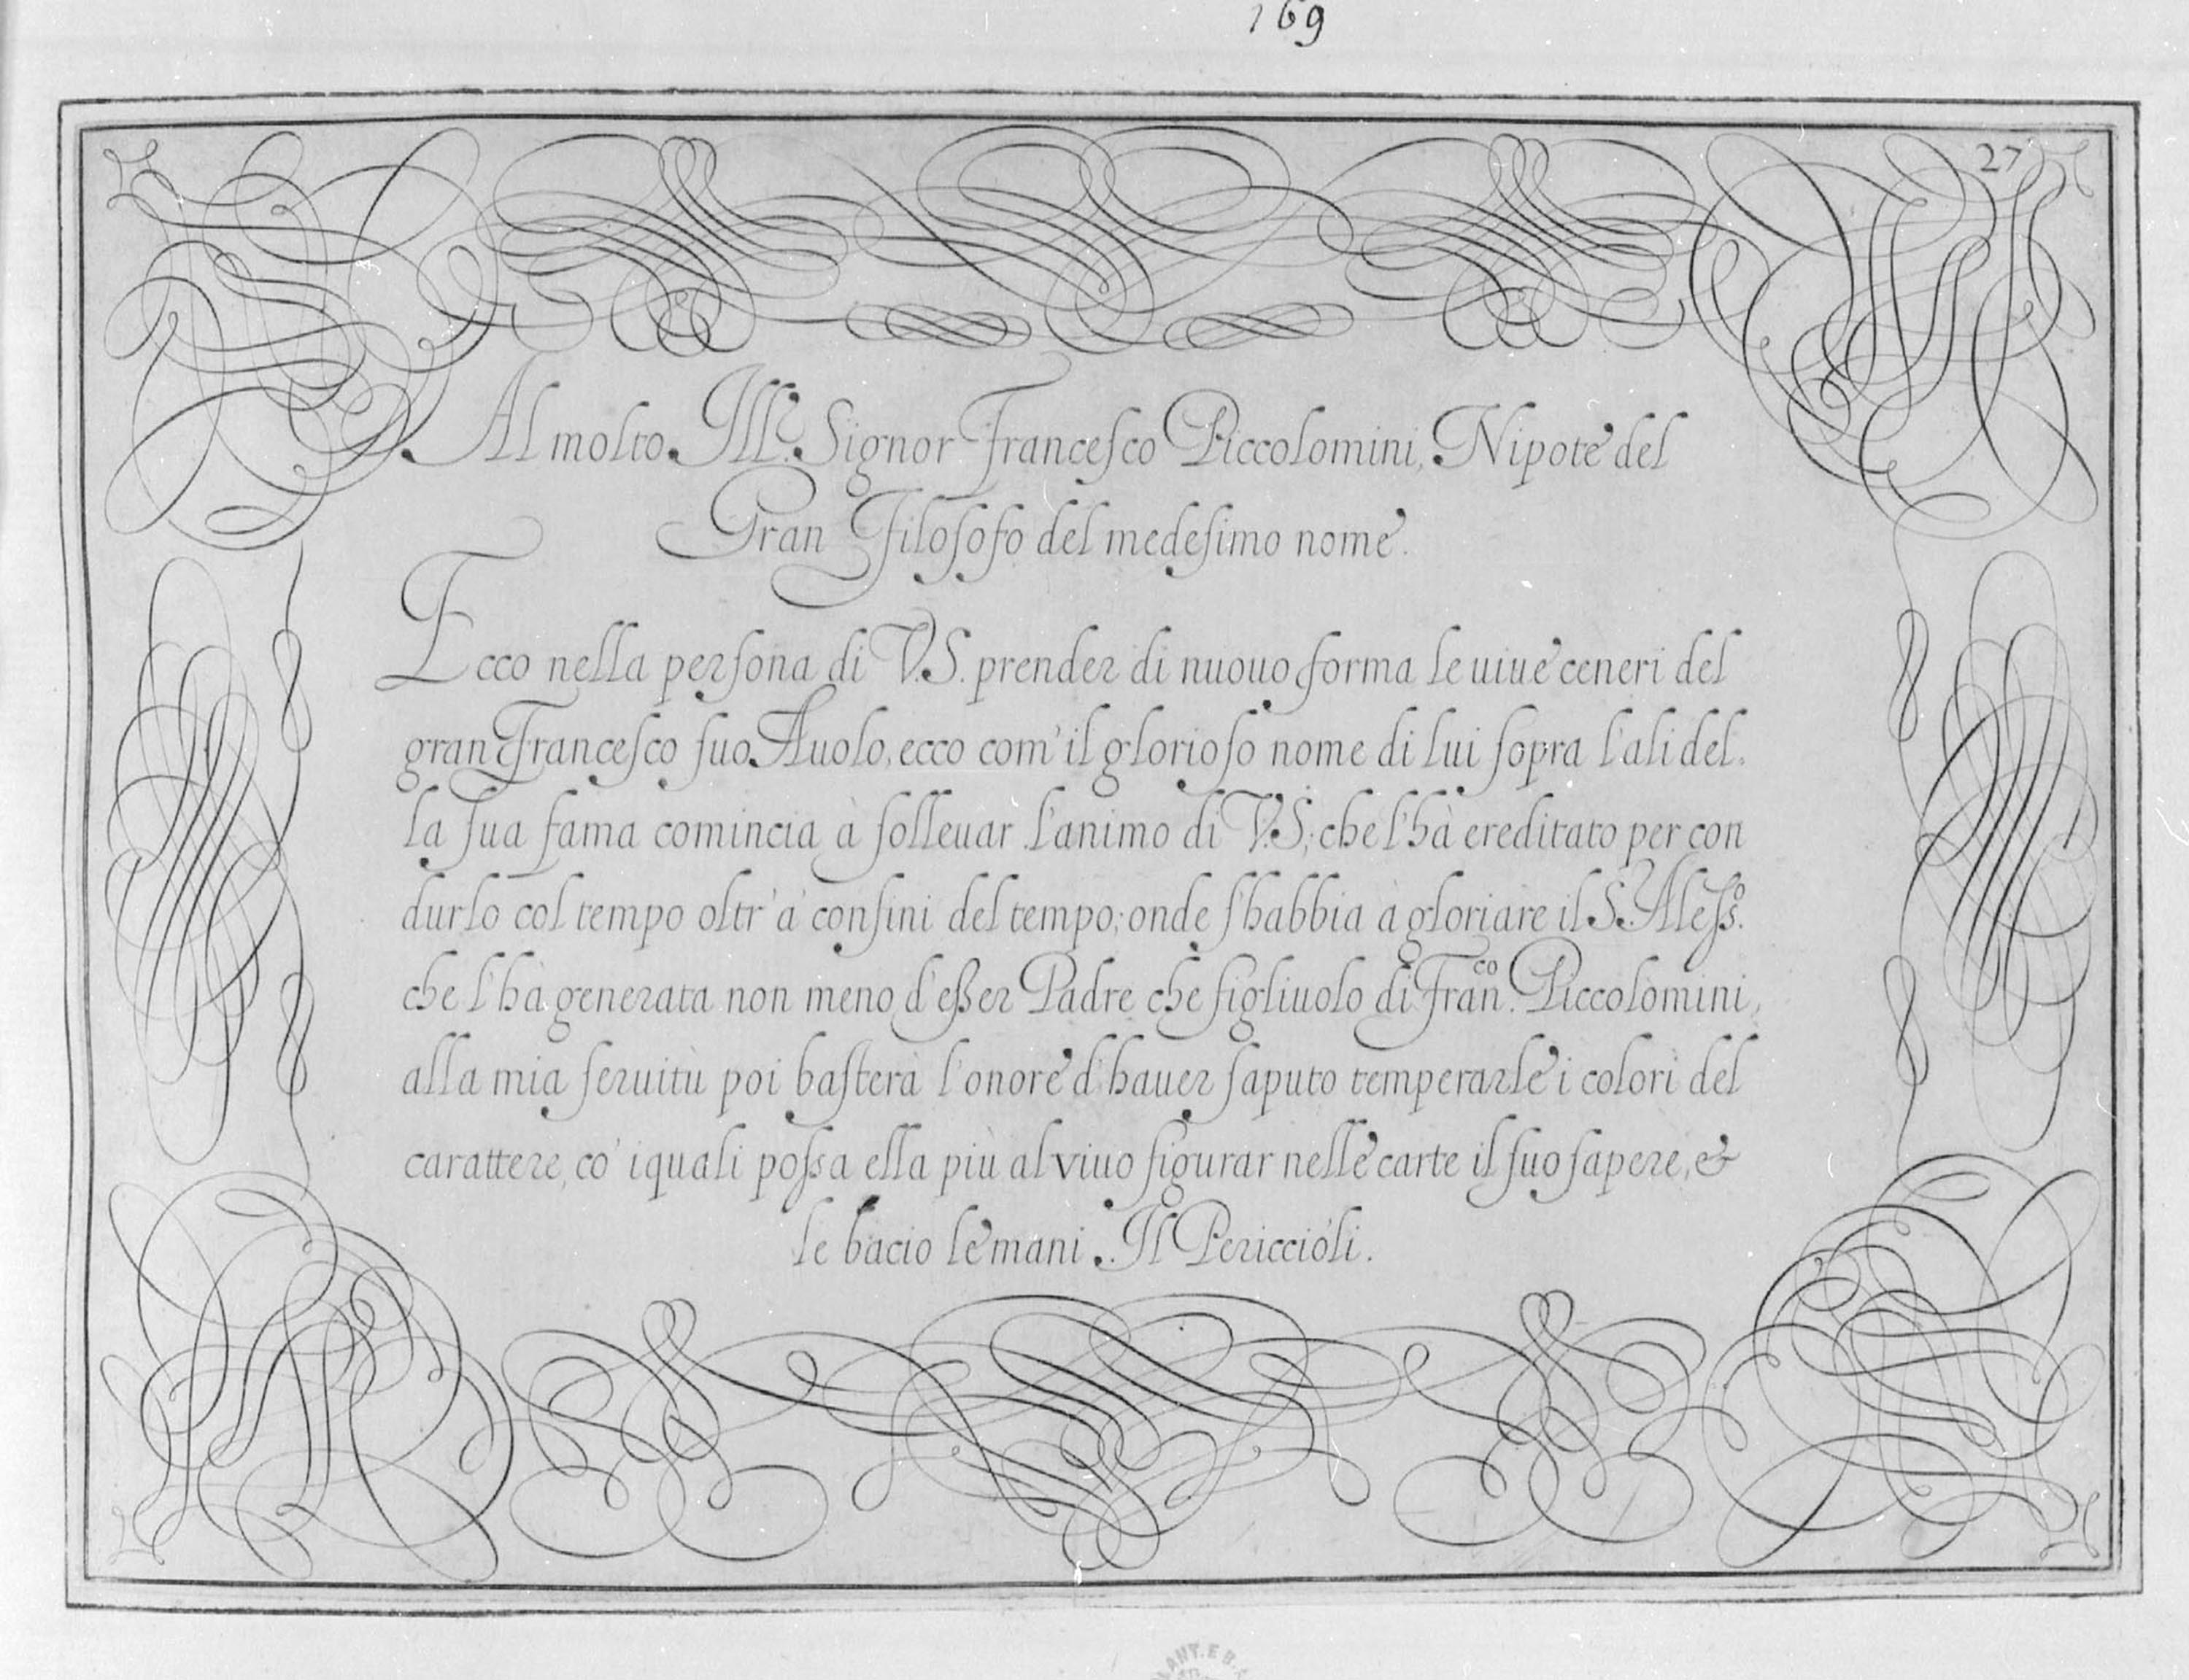 169
27
Al molto Ill.e Signor Francesco Piccolomini, Nipote del
Gran Filosofo del medesimo nome.
Ecco nella persona di V.S. prender di nuouo forma le uiue ceneri del
gran Francesco suo Auolo, ecco com' il glorioso nome di lui sopra l'ali del,
la sua fama comincia à solleuar l'animo di V.S; che l'hà ereditato per con
durlo col tempo oltr' a' confini del tempo; onde s'habbia à gloriare il S. Aless.o
che l'hà generata non meno d'eßer Padre che figliuolo di Fran.co Piccolomini,
alla mia seruitù poi basterà l'onore d'hauer saputo temperarle i colori del
carattere, co' i quali possa ella più al viuo figurar nelle carte il suo sapere, &
le bacio le mani. Il Periccioli.